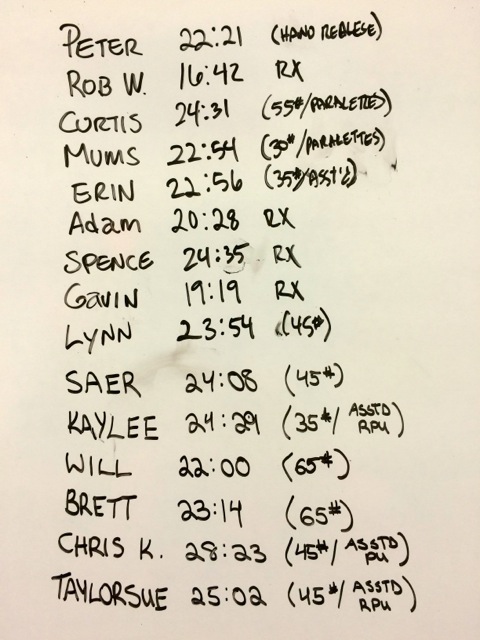 PETER 22:21 (HAND REALESE)
ROB W. 16:42 RX
CURTIS 24:31 (55#/PARALETTES)
MUMS 22:54 (35#/PARALETTES)
ERIN 22:56 (35#/ASST'D)
Adam 20:28 RX
SPENCE 24:35 RX
GAVIN 19:19 RX
LYNN 23:54 (45#)
SAER 24:08 (45#)
KAYLEE 24:29 (35#/ ASSTD RPU)
WILL 22:00 (65#)
BRETT 23:14 (65#)
CHRIS K. 28:23 (45#/ ASSTD PU)
TAYLORSUE 25:02 (45#/ ASSTD RPU)